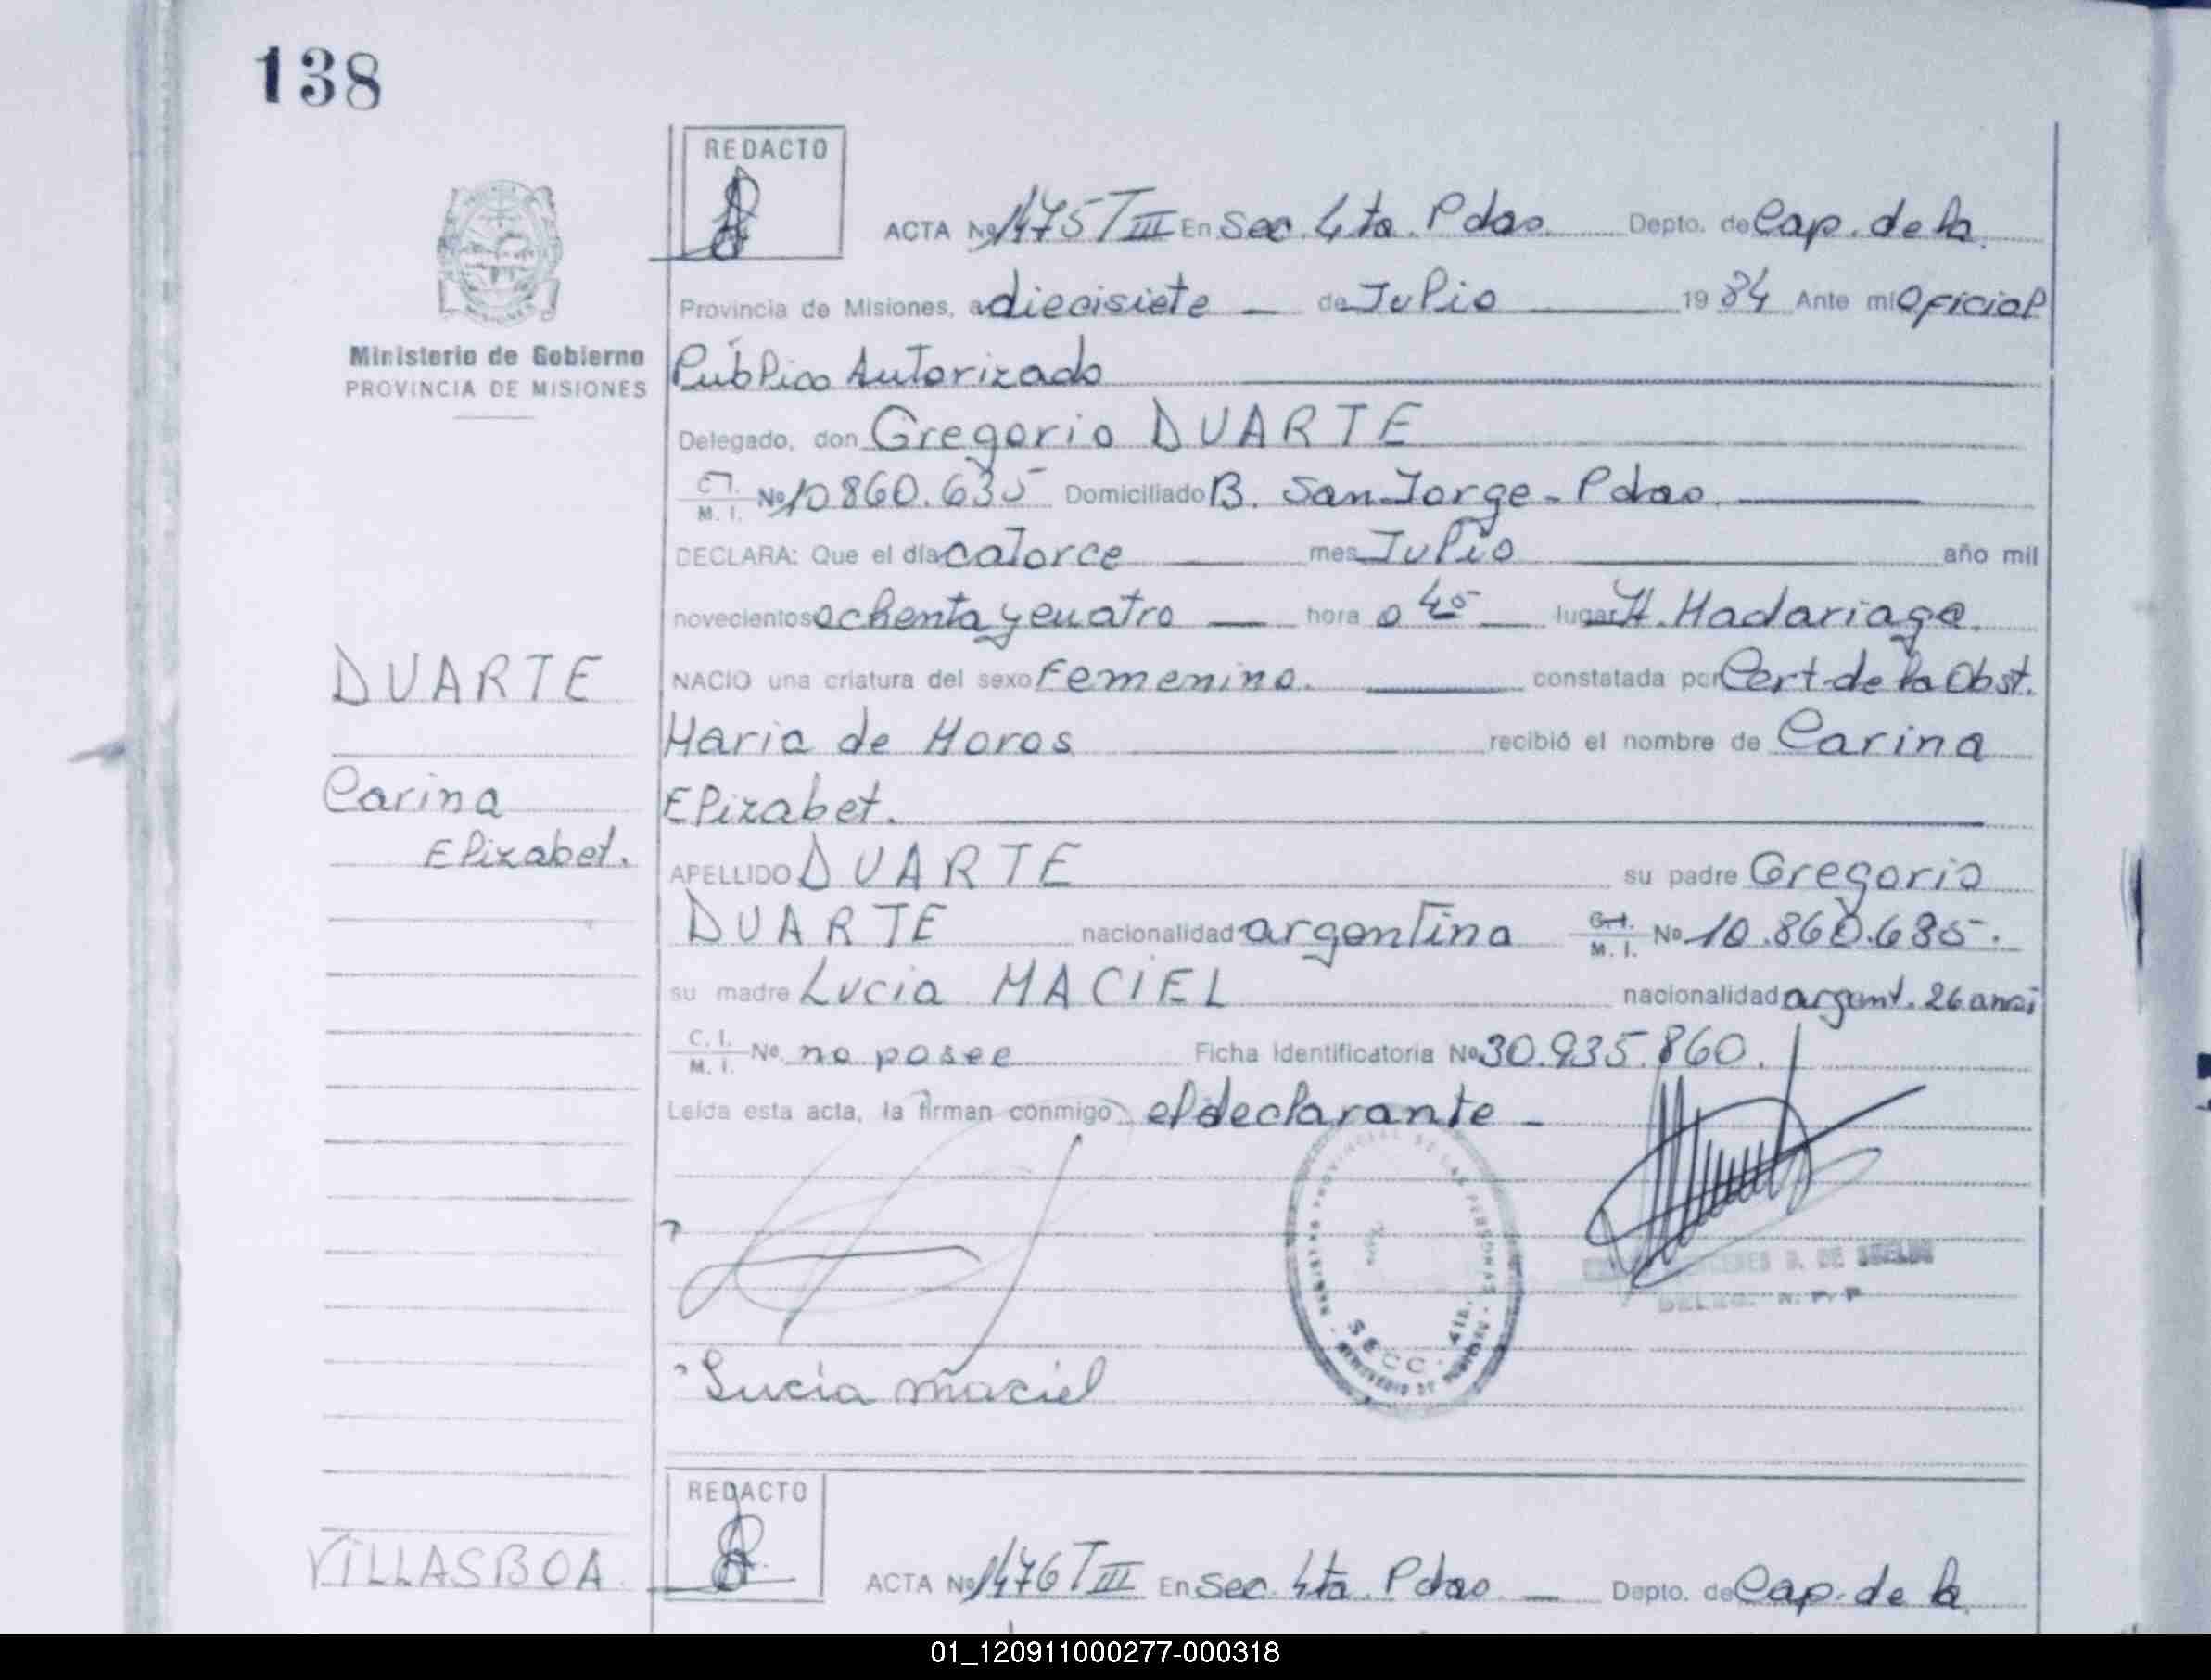 138
REDACTO
ACTA Nº 1475 T III En Sec. 4ta. Pdas. Depto. de Cap. de la
Provincia de Misiones, a diecisiete de Julio 1984 Ante mi Oficial
Ministerio de Gobierno
PROVINCIA DE MISIONES
Público Autorizado
Delegado, don Gregorio DUARTE
C.I. M. I. Nº 10860.635 Domiciliado B. San Jorge - Pdas.
DECLARA: Que el día catorce mes Julio año mil
novecientos ochenta y cuatro hora 0 40 lugar H. Madariaga.
DUARTE
NACIO una criatura del sexo Femenino. constatada por Cert. de la Obst.
Maria de Moros recibió el nombre de Carina
Carina
Elizabet.
Elizabet.
APELLIDO DUARTE su padre Gregorio
DUARTE nacionalidad argentina C.I. M. I. Nº 10.860.635.
su madre Lucia MACIEL nacionalidad argent. 26 anos
C. I. M. I. Nº no posee Ficha Identificatoria Nº 30.935.860.
Leída esta acta, la firman conmigo el declarante
SECC. 4ta.
Lucía maciel
REDACTO
VILLASBOA
ACTA Nº 1476 T III En Sec. 4ta. Pdas. Depto. de Cap. de la
01_120911000277-000318